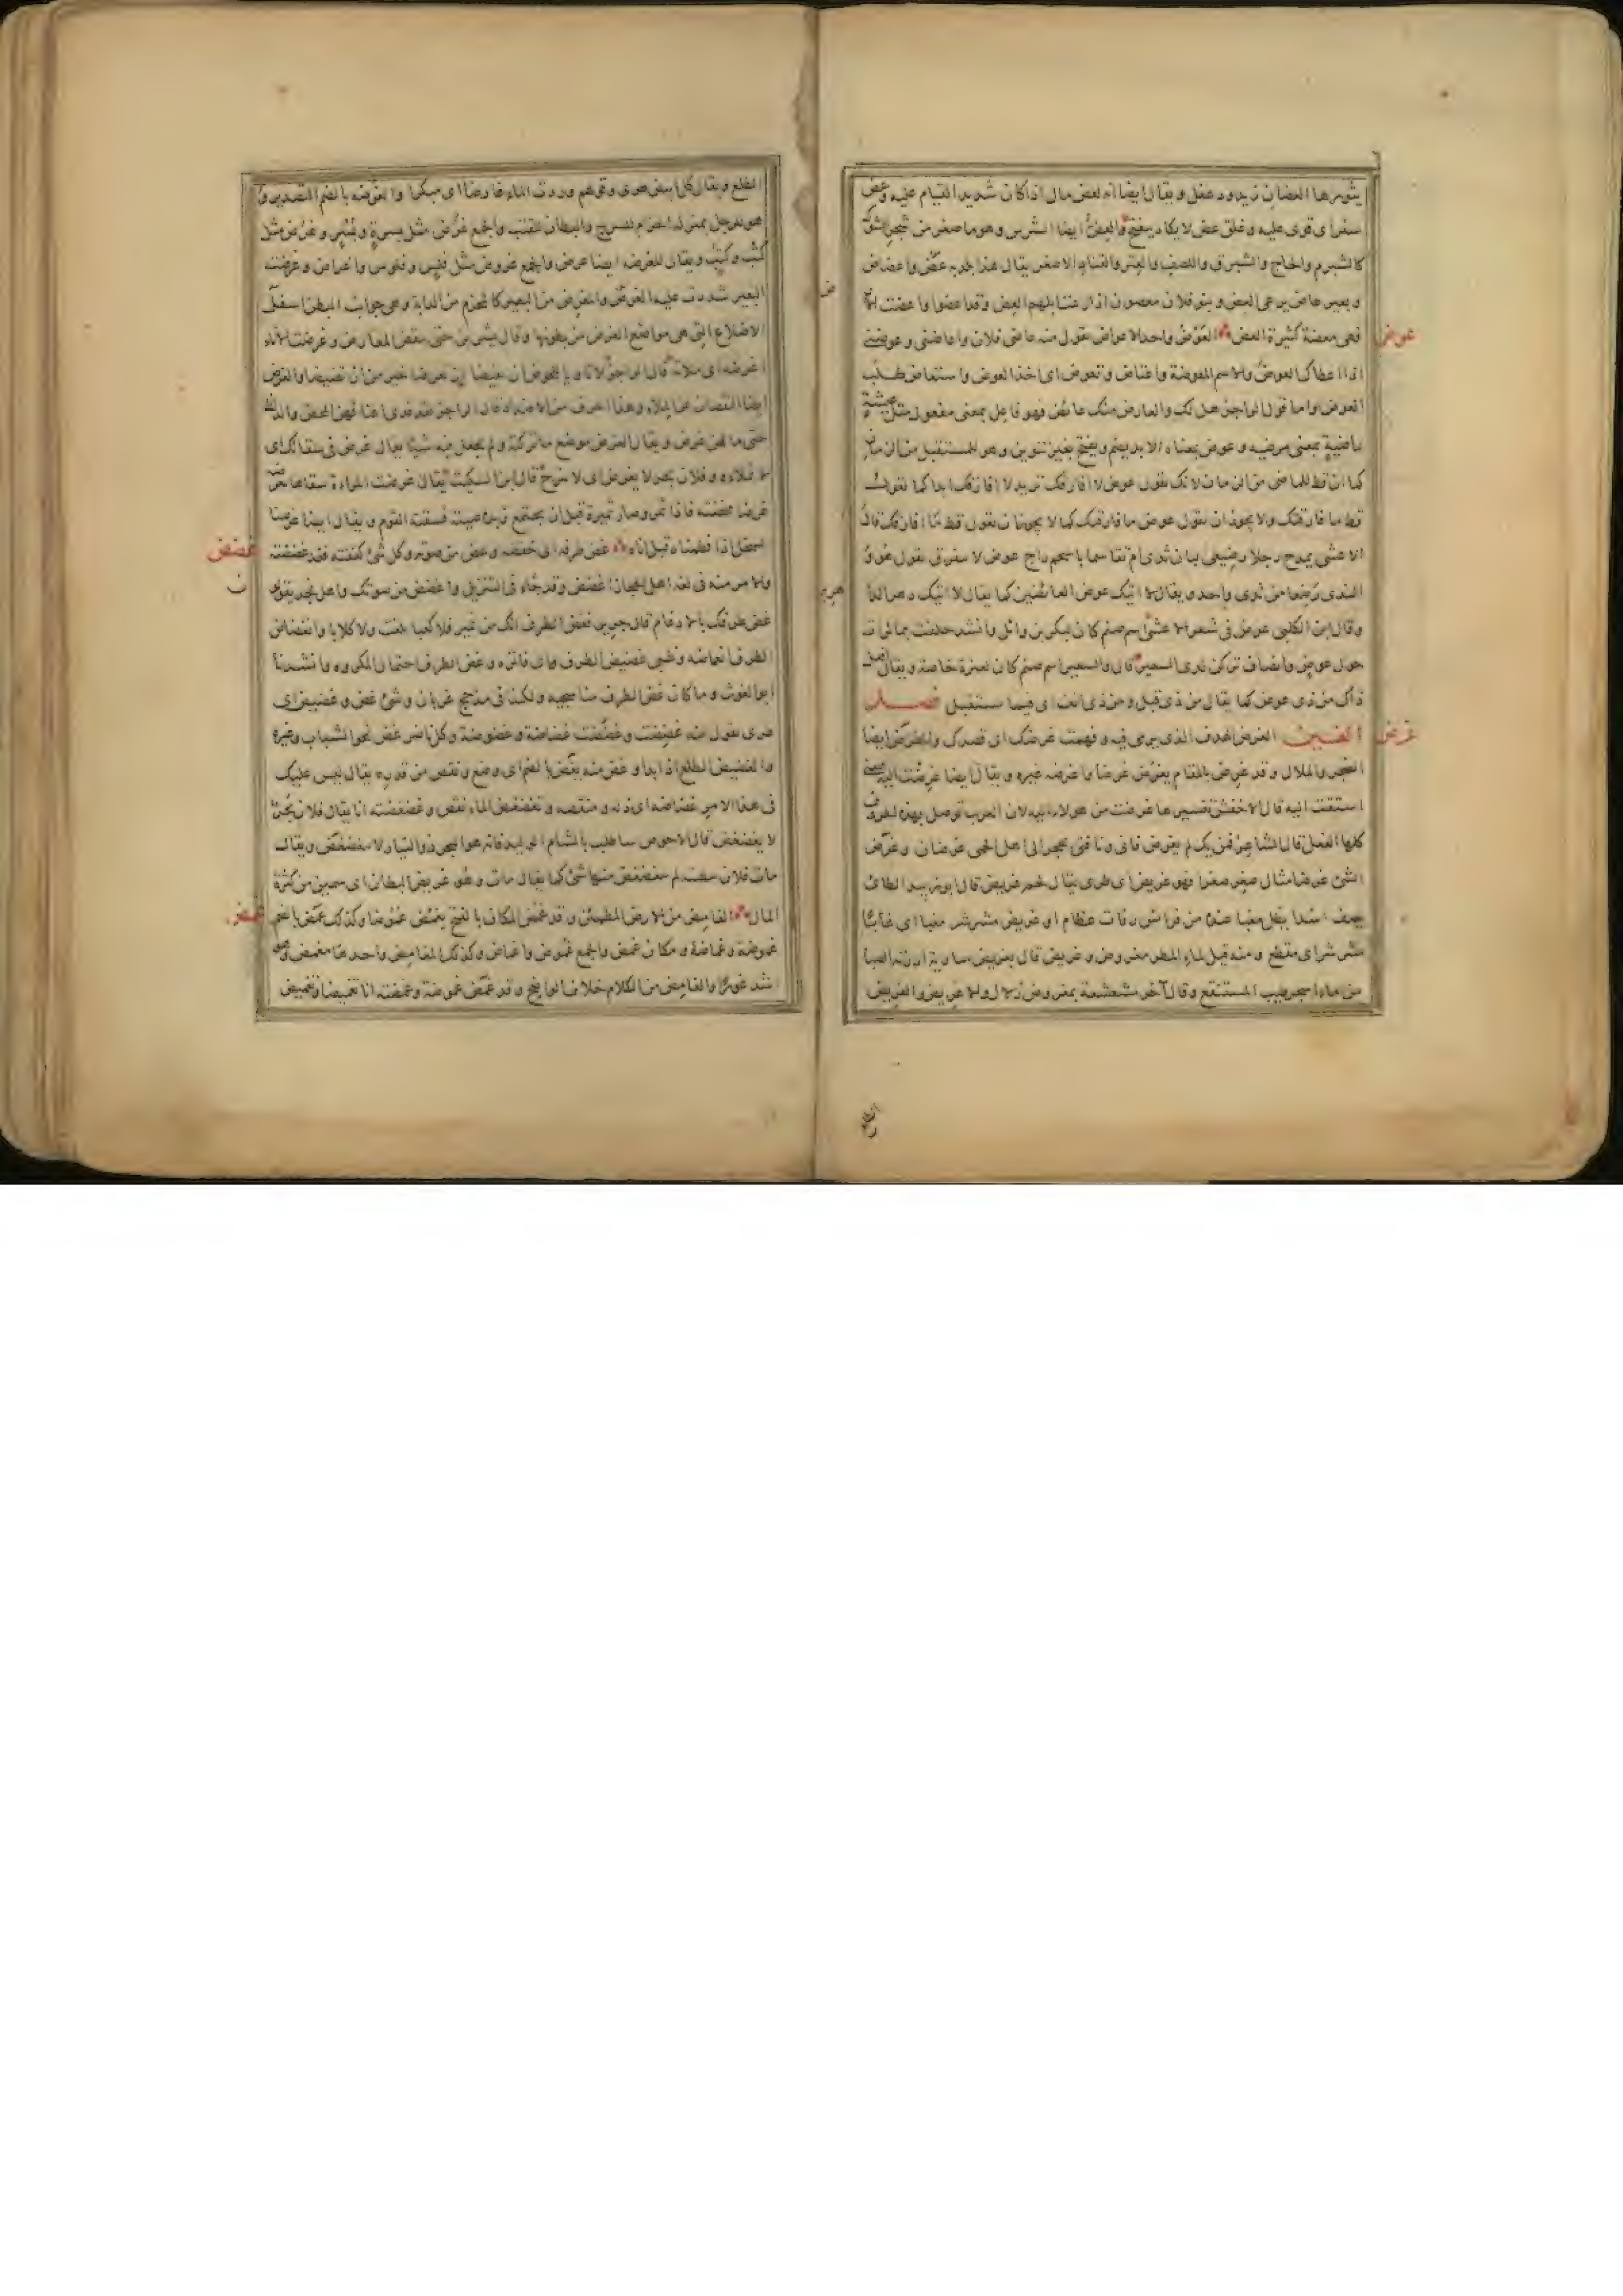 يثورها العضان زيد ودغفل ويقال ايضا انه لعض مال اذا كان شديد القيام عليه وعض
سفر اى قوى عليه وغلق عض لا يكاد ينفتح والعض ايضا الشرس وهو ما صغر من شجر الشوك
كالشبرم والحاج والشبرق واللصف والعتر والقتاد الاصغر يقال هذا بلد به عض واعضاض
وبعير عاض يرعى العض وبنو فلان معضون اذا رعت ابلهم العض وقد اعضوا واعضت الارض
عوض
فهى معضة كثيرة العض العوض واحد الاعواض تقول منه عاضنى فلان واعاضنى وعوضنى
اذا اعطاك العوض والاسم المعوضة واعتاض وتعوض اى اخذ العوض واستعاض طلب
العوض واما قول الراجز هل لك والعارض منك عائض فهو فاعل بمعنى مفعول مثل عيشة
راضية بمعنى مرضيه وعوض معناه الابد يضم ويفتح بغير تنوين وهو للمستقبل من الزمان
كما ان قط للماضى من الزمان لانك تقول عوض لا افارقك تريد لا افارقك ابدا كما تقول
قط ما فارقتك ولا يجوز ان تقول عوض ما فارقتك كما لا يجوز ان تقول قط ما افارقك قال
الاعشى يمدح رجلا رضيعى لبان ثدى ام تقاسما باسحم داج عوض لا نتفرق يقول هو و
الندى رضعا من ثدى واحد ويقال لا اتيك عوض العائضين كما يقال لا اتيك دهر الداهرين
وقال ابن الكلبى عوض فى شعر الاعشى اسم صنم كان لبكر بن وائل وانشد حلفت بمائرات
حول عوض وانصاب تركن لدى السعير قال والسعير اسم صنم كان لعنزة خاصة ويقال افعل
ذاك من ذى عوض كما يقال من ذى قبل ومن ذى انف اى فيما يستقبل فصل
غرض
الغين الغرض الهدف الذى يرمى فيه وفهمت غرضك اى قصدك والغرض ايضا
الضجر والملال وقد غرض بالمقام يغرض غرضا واغرضه غيره ويقال ايضا غرضت اليه بمعنى
اشتقت اليه قال الاخفش تفسيرها غرضت من هولاء اليه لان العرب توصل بهذه الحروف
كلها الفعل قال الشاعر فمن يك لم يغرض فانى وناقتى بحجر الى اهل الحمى غرضان وغرض
الشئ غرضا مثال صغر صغرا فهو غريض اى طرى يقال لحم غريض قال ابو زبيد الطائى
يصف اسدا يظل مغبا عنده من فرائس رفات عظام او غريض مشرشر مغبا اى غابا
مشرشر اى مقطع ومنه قيل لماء المطر مغروض وغريض قال بغريض سارية ادرته الصبا
من ماء اسجر طيب المستنقع وقال آخر مشعشعة بمغروض زلال والاغريض والغريض
الطلع ويقال كل ابيض طرى وقولهم وردت الماء غارضا اى مبكرا والغرضة بالضم التصدير و
هو للرحل بمنزلة الحزام للسرج والبطان للقتب والجمع غرض مثل بسرة وبسر وغرض مثل
كتب وكتب ويقال للغرضة ايضا غرض والجمع غروض مثل فلس وفلوس واغراض وغرضت
البعير شددت عليه الغرض والمغرض من البعير كالمحزم من الدابة وهى جوانب البطن اسفل
الاضلاع التى هى مواضع الغرض من بطونها وقال بشر بن حتى مقض المغارض وغرضت الاناء
اغرضه اى ملأته قال الراجز لا تاويا للحوض ان يغيضا ان تغرضا خير من ان تغيضا والغرض
ايضا النقصان عن الملء وهذا الحرف من الاضداد قال الراجز لقد فدى اعناقهن المحض والدأظ
حتى ما لهن غرض ويقال الغرض موضع ما تركته ولم تجعل فيه شيئا يقال غرض فى سقائك اى
لا تملاه وفلان بحر لا يغرض اى لا ينزح قال ابن السكيت يقال غرضت المراة سقاءها تغرضه
غرضا مخضته فاذا ثمر وصار ثميرة قبل ان يجتمع زبده صبته فسقته القوم ويقال ايضا غرضنا
غضض
السخل اذا فطمناه قبل اناه غض طرفه اى خفضه وغض من صوته وكل شئ كففته فقد غضضته
والامر منه فى لغة اهل الحجاز اغضض وقد جاء فى التنزيل واغضض من صوتك واهل نجد يقولون
غض طرفك بالادغام قال جرير فغض الطرف انك من نمير فلا كعبا بلغت ولا كلابا وانغضاض
الطرف انغماضه وظبى غضيض الطرف اى فاتره وغض الطرف احتمال المكروه وانشدنا
ابو الغوث وما كان غض الطرف منا سجية ولكننا فى مذحج غربان وشئ غض وغضيض اى
طرى تقول منه غضضت وغضضت غضاضة وغضوضة وكل ناضر غض نحو الشباب وغيره
والغضيض الطلع اذا بدا وغض منه يغض بالضم اى وضع ونقص من قدره يقال ليس عليك
فى هذا الامر غضاضة اى ذلة ومنقصة وتغضغض الماء نقص وغضغضته انا يقال فلان بحر
لا يغضغض قال الاحوص ساطلب بالشام الوليد فانه هو البحر ذو التيار لا يتغضغض ويقال
مات فلان ببطنته لم يتغضغض منها شئ كما يقال مات وهو عريض البطان اى سمين من كثرة
غمض
المال الغامض من الارض المطمئن وقد غمض المكان بالفتح يغمض غموضا وكذلك غمض بالضم
غموضة وغماضة ومكان غمض والجمع غموض واغماض وكذلك المغامض واحدها مغمض وهو
اشد غورا والغامض من الكلام خلاف الواضح وقد غمض غموضة وغمضته انا تغميضا وتغميض